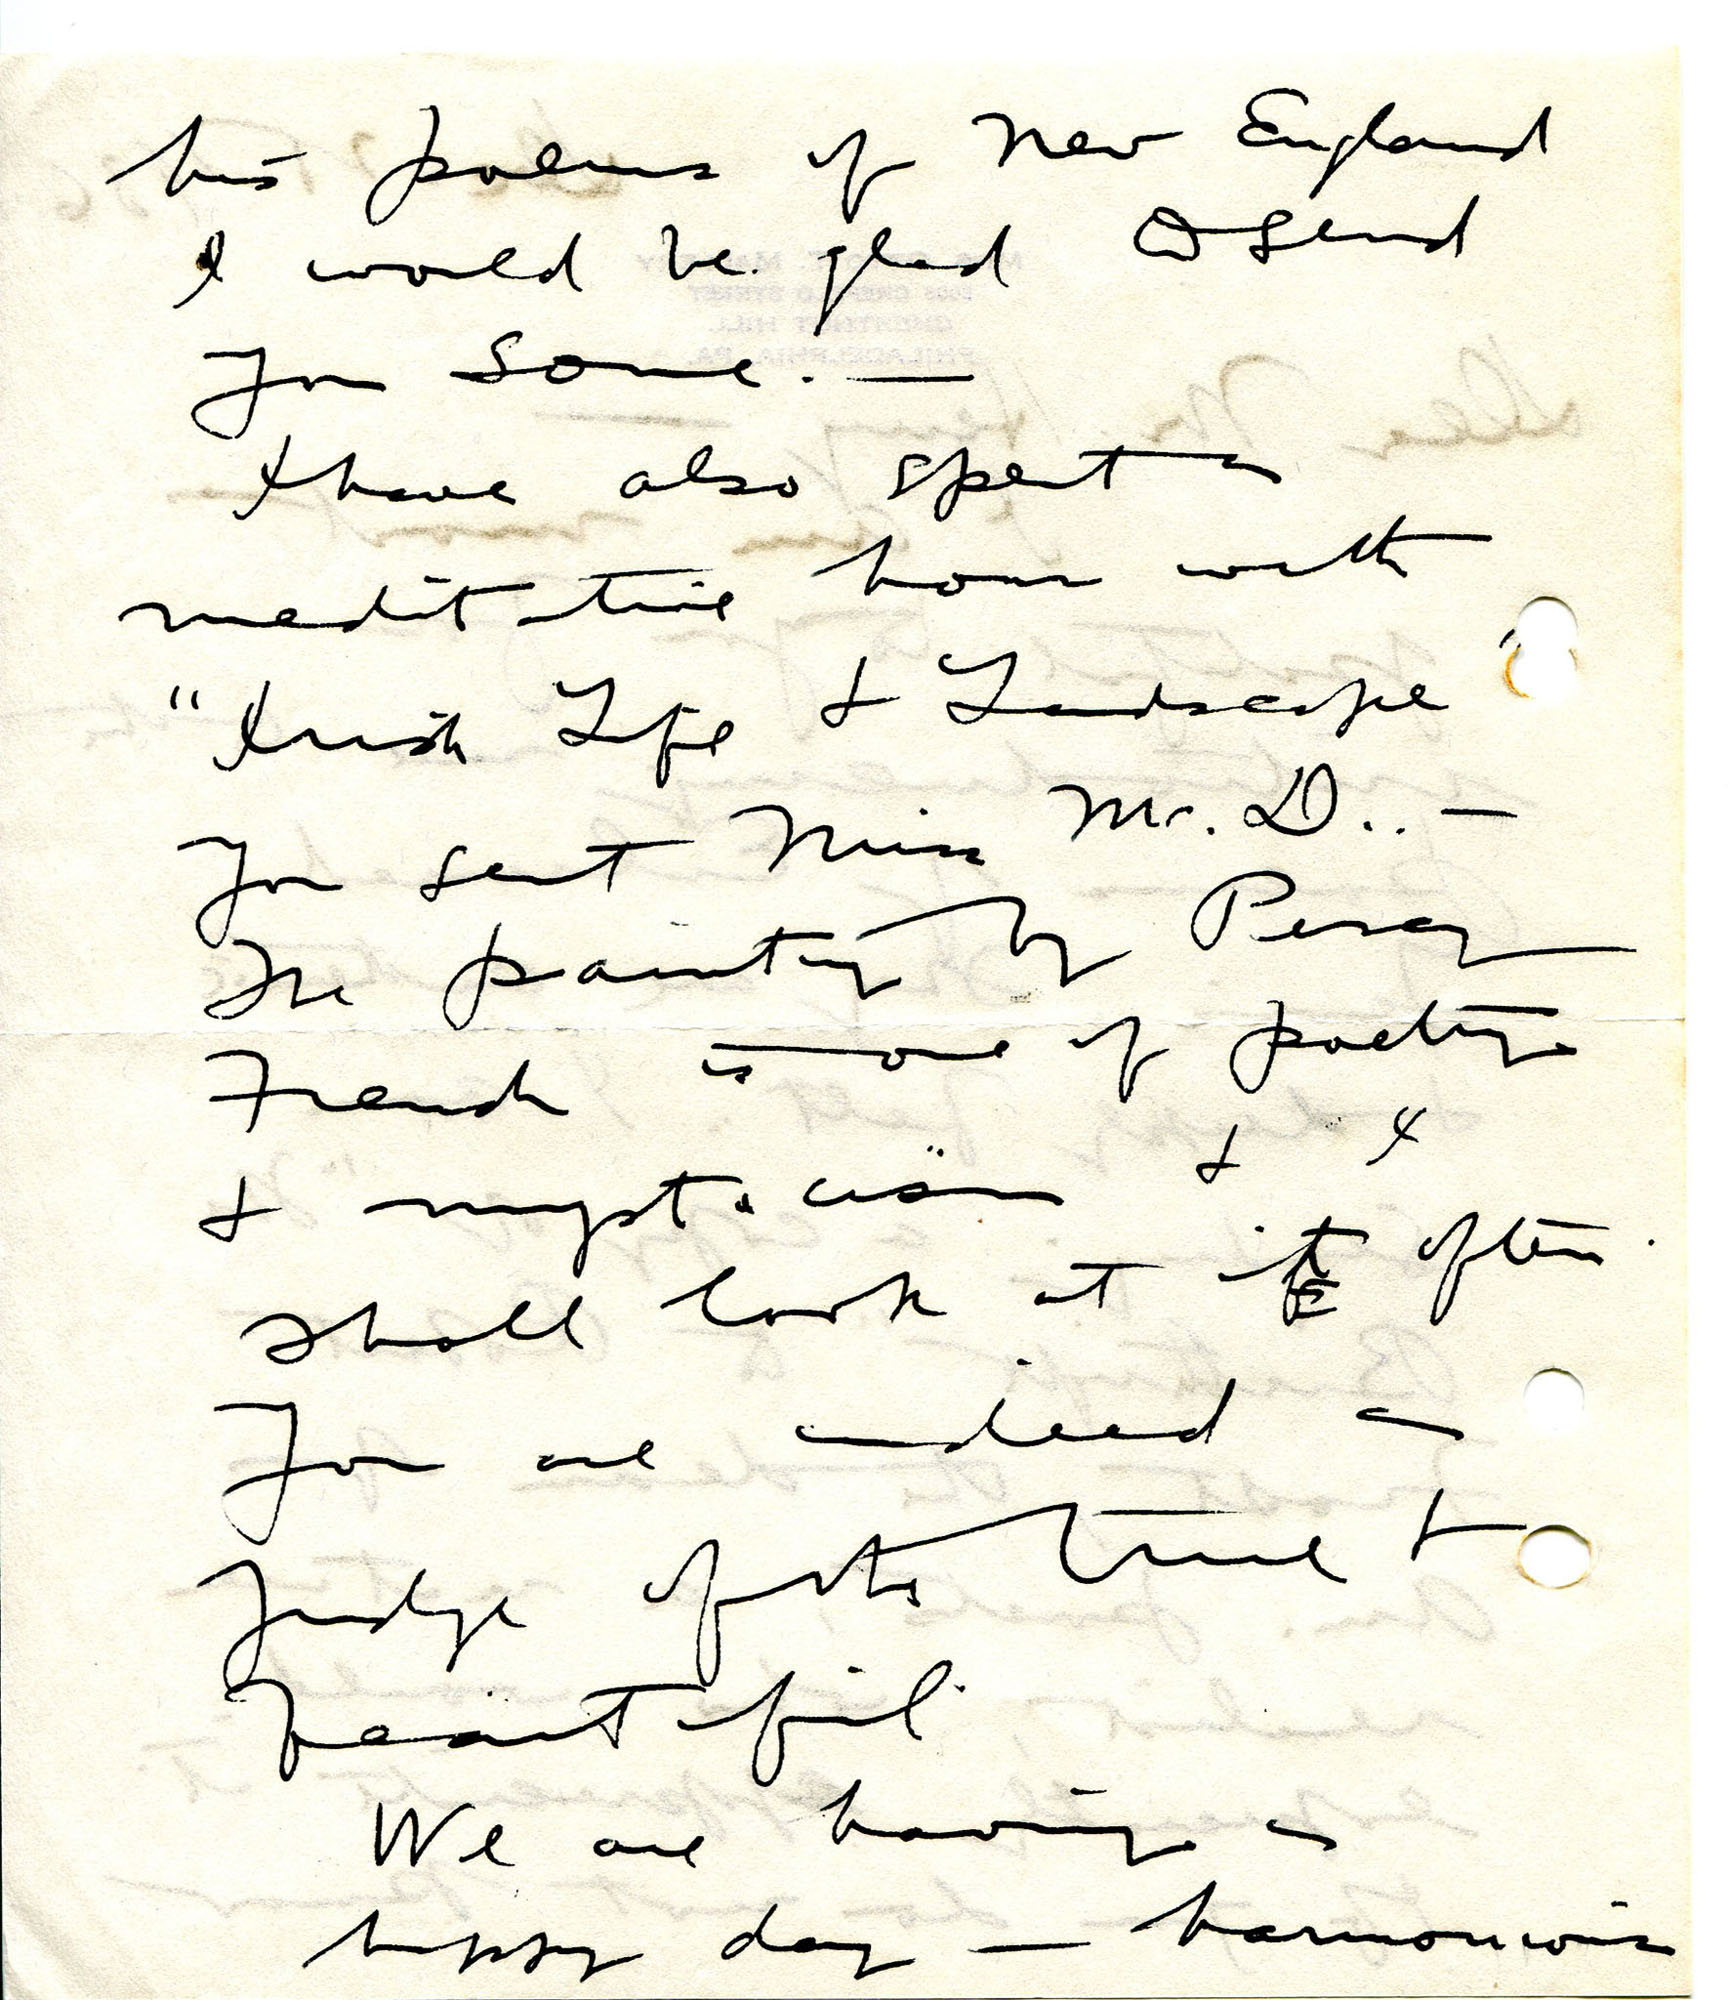 his poems of New England
I would be glad to send
you some. —
I have also spent a
meditative hour with
"Irish Life & Landscape"
you sent Miss Mc. D.. —
The painting by Percy
French is one of poetry
& mysticism & I
shall look at it often.
You are indeed a
judge of the true &
beautiful.
We are having a
happy day — harmonious